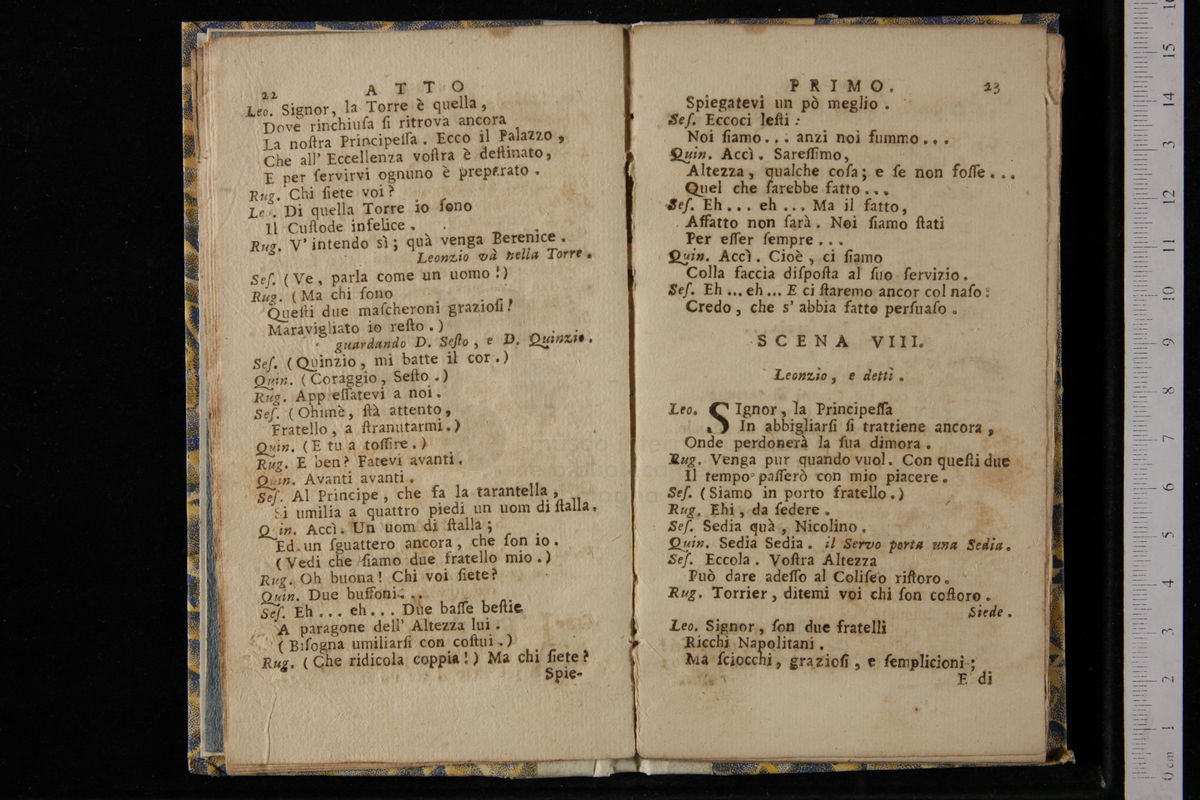 22 ATTO
Leo. Signor, la Torre è quella,
Dove rinchiuſa ſi ritrova ancora
La noſtra Principeſſa. Ecco il Palazzo,
Che all' Eccellenza voſtra è deſtinato,
E per ſervirvi ognuno è preparato.
Rug. Chi ſiete voi?
Leo. Di quella Torre io ſono
Il Cuſtode infelice.
Rug. V'intendo sì; quà venga Berenice.
Leonzio và nella Torre.
Seſ. (Ve, parla come un uomo!)
Rug. (Ma chi ſono
Queſti due maſcheroni grazioſi!
Maravigliato io reſto.)
guardando D. Seſto, e D. Quinzio.
Seſ. (Quinzio, mi batte il cor.)
Quin. (Coraggio, Seſto.)
Rug. Appreſſatevi a noi.
Seſ. (Ohimè, ſtà attento,
Fratello, a ſtranutarmi.)
Quin. (E tu a toſſire.)
Rug. E ben? Fatevi avanti.
Quin. Avanti avanti.
Seſ. Al Principe, che fa la tarantella,
Si umilia a quattro piedi un uom di ſtalla.
Quin. Accì. Un uom di ſtalla;
Ed un ſguattero ancora, che ſon io.
(Vedi che ſiamo due fratello mio.)
Rug. Oh buona! Chi voi ſiete?
Quin. Due buffoni...
Seſ. Eh... eh... Due baſſe beſtie
A paragone dell' Altezza lui.
(Biſogna umiliarſi con coſtui.)
Rug. (Che ridicola coppia!) Ma chi ſiete?
Spie-
PRIMO. 23
Spiegatevi un pò meglio.
Seſ. Eccoci leſti:
Noi ſiamo... anzi noi fummo...
Quin. Accì. Sareſſimo,
Altezza, qualche coſa; e ſe non foſſe...
Quel che ſarebbe fatto...
Seſ. Eh... eh... Ma il fatto,
Affatto non farà. Noi ſiamo ſtati
Per eſſer ſempre...
Quin. Accì. Cioè, ci ſiamo
Colla faccia diſpoſta al ſuo ſervizio.
Seſ. Eh... eh... E ci ſtaremo ancor col naſo:
Credo, che s'abbia fatto perſuaſo.
SCENA VIII.
Leonzio, e detti.
Leo. SIgnor, la Principeſſa
In abbigliarſi ſi trattiene ancora,
Onde perdonerà la ſua dimora.
Rug. Venga pur quando vuol. Con queſti due
Il tempo paſſerò con mio piacere.
Seſ. (Siamo in porto fratello.)
Rug. Ehi, da ſedere.
Seſ. Sedia quà, Nicolino.
Quin. Sedia Sedia. il Servo porta una Sedia.
Seſ. Eccola. Voſtra Altezza
Può dare adeſſo al Coliſeo riſtoro.
Rug. Torrier, ditemi voi chi ſon coſtoro.
Siede.
Leo. Signor, ſon due fratelli
Ricchi Napolitani.
Ma ſciocchi, grazioſi, e ſemplicioni;
E di
0 cm 1 2 3 4 5 6 7 8 9 10 11 12 13 14 15 16